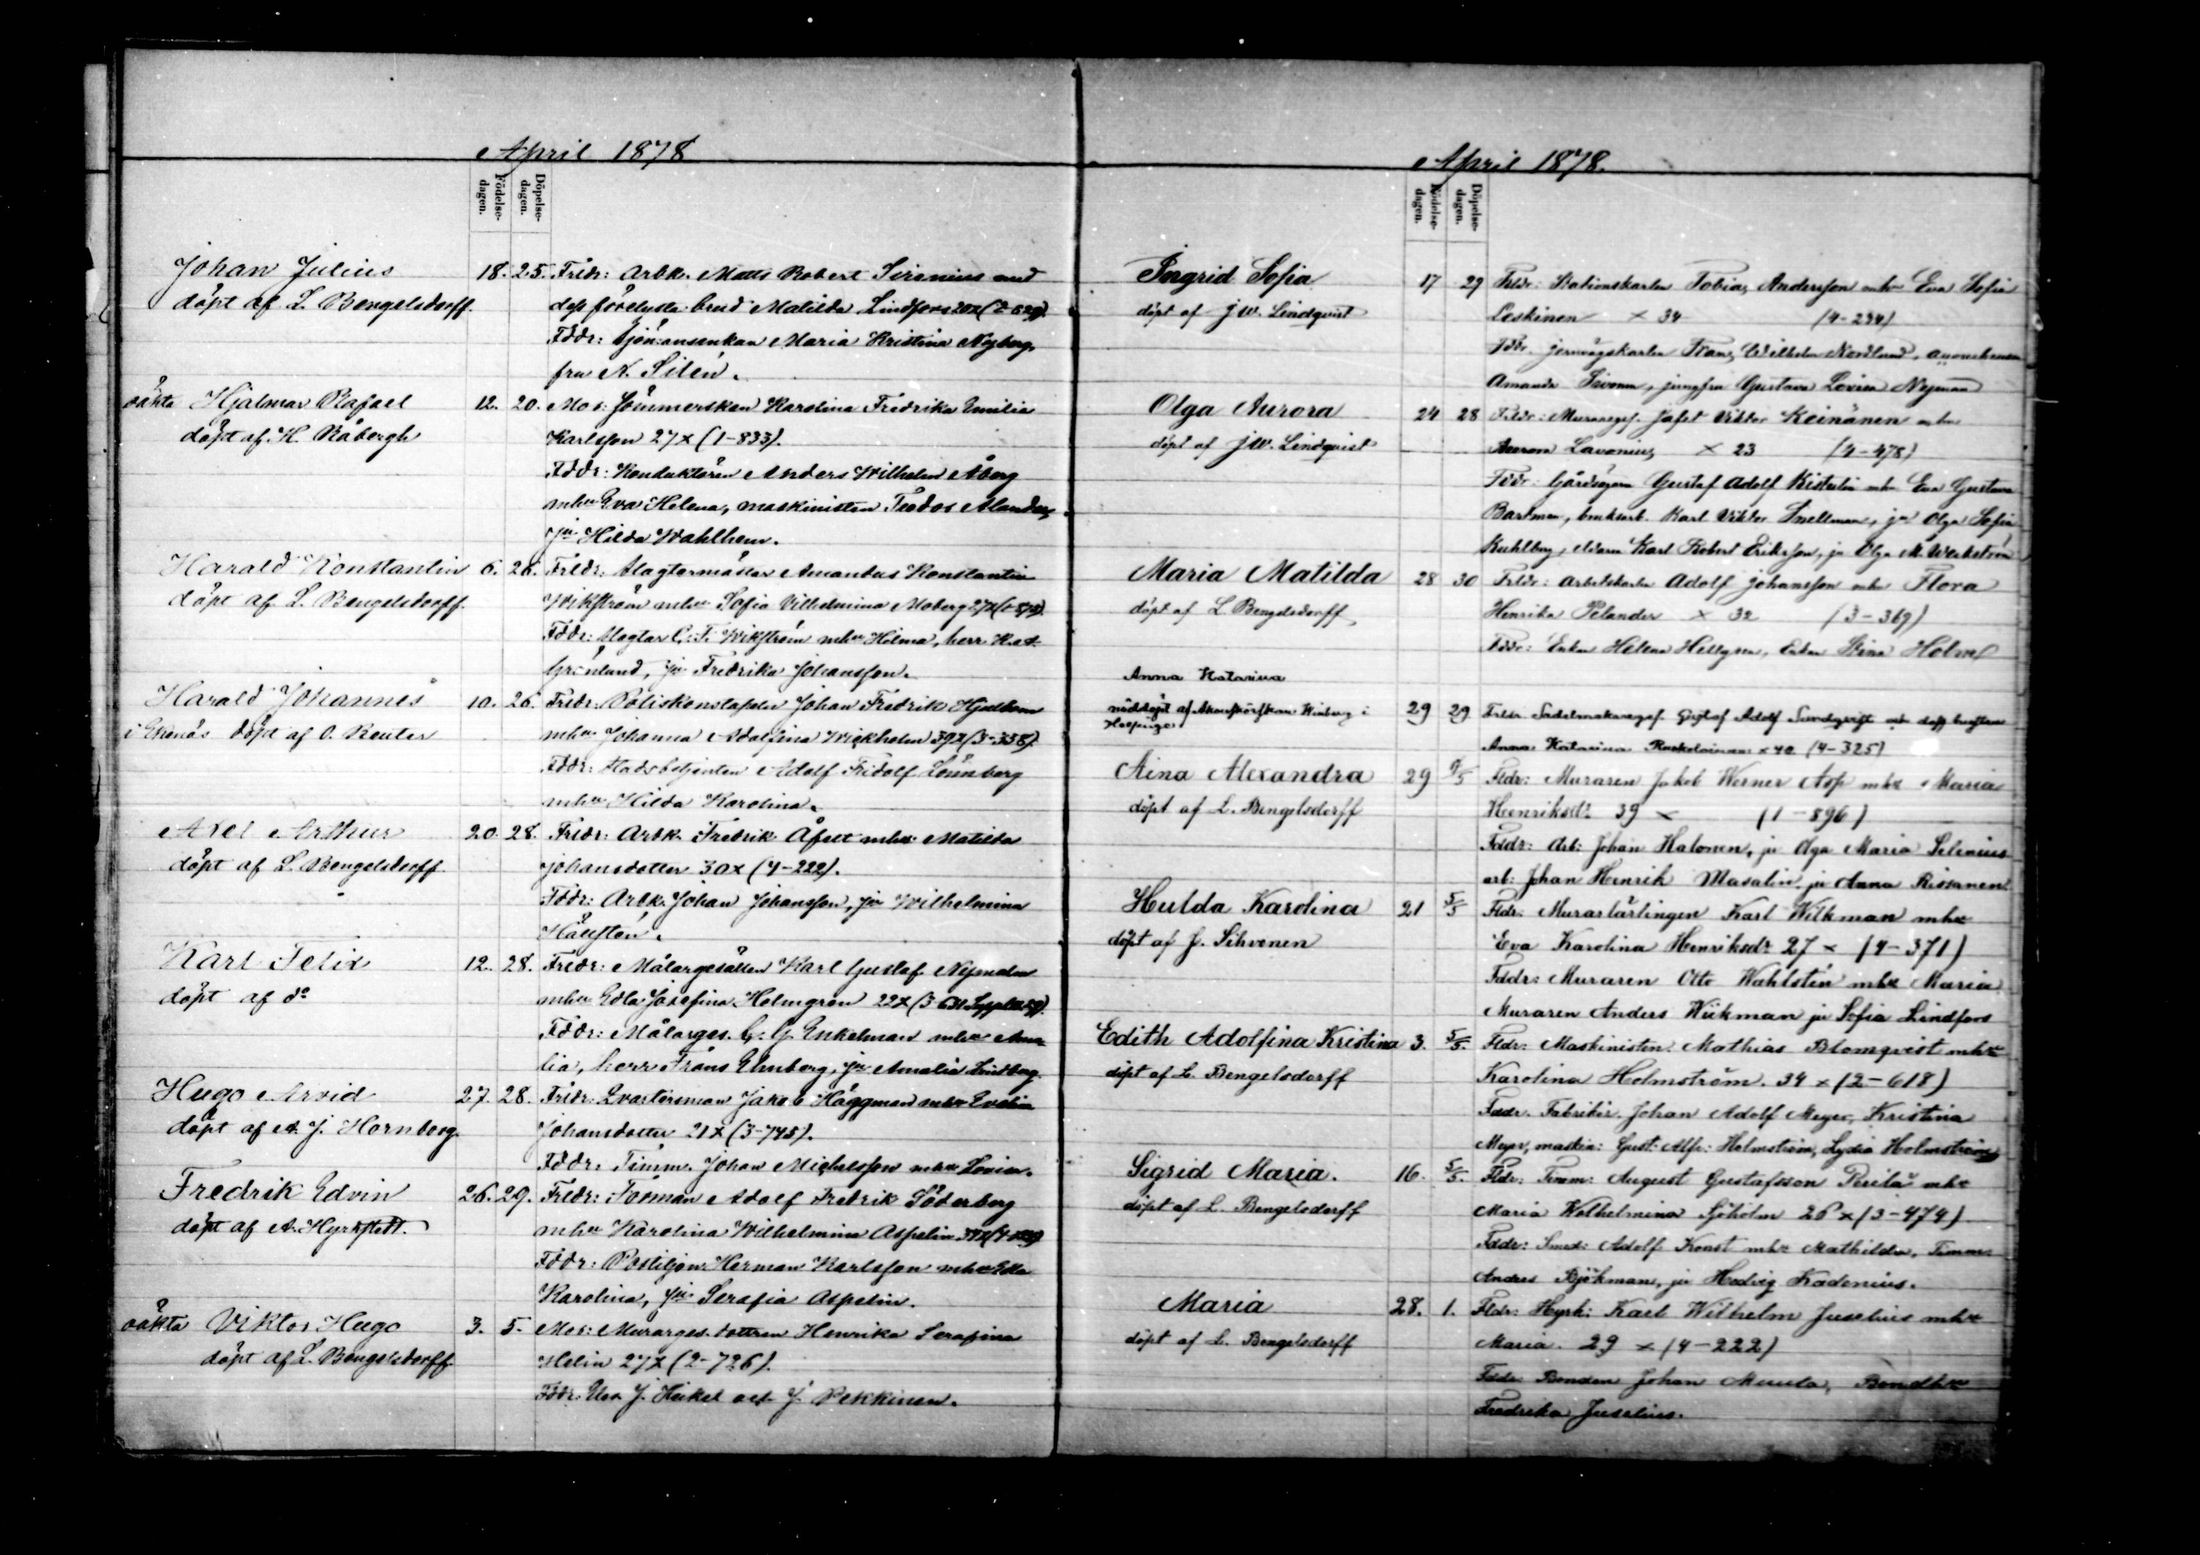 April 1878
Födelse-dagen.
Döpelse-dagen.
Johan Julius 18. 25. Frldr: Arbk. Matts Robert Sirenius med
döpt af L. Bengelsdorff. dess förelysta brud Matilda Lindfors 20 x (2-629).
Fddr: Sjömansenkan Maria Kristina Nyberg,
fru N. Silén.
oäkta Hjalmar Rafael 12. 20. Mor: Sömmerskan Karolina Fredrika Emilia
döpt af H. Råbergh Karlsson 27 x (1-833).
Fddr: Konduktören Anders Wilhelm Åberg
mhu Eva Helena, maskinisten Teodor Alander,
jn Hilda Wahlhem.
Harald Konstantin 6. 26. Frldr: Slagtarmäster Amandus Konstantin
döpt af L. Bengelsdorff. Wikström mhu Sofia Vilhelmina Moberg 27 x
Fddr: Slagtar C. F. Wikström mhu Hilma, herr K. A.
Grönlund, jn Fredrika Johansson.
Harald Johannes 10. 26. Frldr: Poliskonstapeln Johan Fredrik Hjultbom
i Ekenäs döpt af O. Reuter mhu Johanna Adolfina Wickholm 39 x (3-338).
Fddr: Stadsbetjenten Adolf Fridolf Lönnberg
mhu Hilda Karolina.
Axel Arthur 20. 28. Frldr: Arbk. Fredrik Åfelt mhu Matilda
döpt af L. Bengelsdorff. Johansdotter 30 x (4-222).
Fddr: Arbk. Johan Johansson, jn Wilhelmina
Hållsten.
Karl Felix 12. 28. Frldr: Målargesällen Karl Gustaf Nymalm
döpt af do mhu Edla Josefina Holmgren 22 x
Fddr: Målarges. G. G. Enkelman mhu Ama-
lia, herr Frans Ehnberg, jn Amalia Lindberg.
Hugo Arvid 27. 28. Frldr: Qvartersman Jakob Häggman mhu Evelin
döpt af A. J. Hornborg. Johansdotter 21 x (3-745).
Fddr: Timm. Johan Michelsson mhu Lovisa.
Fredrik Edvin 26. 29. Frldr: Formän Adolf Fredrik Söderberg
döpt af A. Hyrkstedt. mhu Karolina Wilhelmina Aspelin
Fddr: Postiljon Herman Karlsson mhu Edla
Karolina, jn Serafia Aspelin.
oäkta Viktor Hugo 3. 5. Mor: Murarges. dottren Henrika Serafina
döpt af L. Bengelsdorff Helin 27 x (2-726).
Fddr: Elev. J. Heikel och J. Pekkinen.
April 1878.
Födelse-dagen.
Döpelse-dagen.
Ingrid Sofia 17 29 Frldr: Stationskarlen Tobias Andersson mhu Eva Sofia
döpt af J W. Lindqvist Leskinen x 34 (4-294)
Fddr. jernvägskarlen Frans Wilhelm Nordlund,
Amanda jungfru Gustava Lovisa Nyman
Olga Aurora 24 28 Frldr: Murareges. Jafet Viktor Keinänen mhu
döpt af J W. Lindqvist Aurora Lavonius x 23 (4-478)
Fddr: Gårdsegare Gustaf Adolf mhu Eva Gustava
Bartman, bruksarb. Karl Viktor Snellman, jn Olga Sofia
Kuhlberg, eldaren Karl Robert Eriksson, jn Olga M. Weckström
Maria Matilda 28 30 Frldr: Arbetskarlen Adolf Johansson mhu Flora
döpt af L Bengelsdorff, Henrika Pelander x 32 (3-369)
Fddr: Enkan Helena Hellgren, Enkan Stina Holm
Anna Katarina
nöddöpt af i 29 29 Frldr. Sadelmakareges. Gustaf Adolf Sundqvist mhu dess hustru
Hospitze. Anna Katarina x 40 (4-325)
Aina Alexandra 29 9/5 Fldr: Muraren Jakob Werner Asp mhu Maria
döpt af L. Bengelsdorff Henriksdr 39 x (1-896)
Fddr: Arb: Johan Halonen, jn Olga Maria Selenius
arb: Johan Henrik Masalin, jn Anna Rissanen.
Hulda Karolina 21 5/5 Fldr: Murarlärlingen Karl Wikman mhu
döpt af J. Sihvonen Eva Karolina Henriksdr 27 x (4-371)
Fddr: Muraren Otto Wahlstén mhu Maria
Muraren Anders Wikman jn Sofia Lindfors
Edith Adolfina Kristina 3. 5/5. Fldr: Maskinisten Mathias Blomqvist mhu
döpt af L. Bengelsdorff Karolina Holmström. 34 x (2-618)
Fddr. Fabrikör. Johan Adolf Meyer, Kristina
Meyer, maskin: Gust: Alfr: Holmström, Lydia Holmström
Sigrid Maria. 16. 5/5. Fldr: Timm: August Gustafsson Perilä mhu
döpt af L. Bengelsdorff Maria Wilhelmina Sjöholm 26 x (3-474)
Fddr: Smed: Adolf Kvast mhu Mathilda, Timm:
Anders Björkman, jn Hedvig Kadenius.
Maria 28. 1. Fldr: Hyrk: Karl Wilhelm Juselius mhu
döpt af L. Bengelsdorff Maria. 29 x (4-222)
Fddr Bonden Johan Muula, Bondhu
Fredrika Juselius.